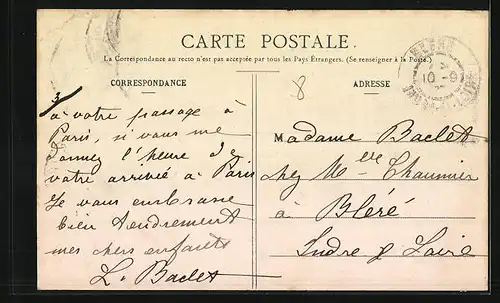 CARTE POSTALE.
La Correspondance au recto n'est pas acceptée par tous les Pays Étrangers. (Se renseigner à la Poste.)
CORRESPONDANCE
à votre passage à
Paris, si vous me
donnez l'heure de
votre arrivée à Paris
Je vous embrasse
bien tendrement
mes chers enfants
L. Baclet
8
ADRESSE
Madame Baclet
chez Mlle Thaumier
à Bléré
Indre & Loire
BLÉRÉ